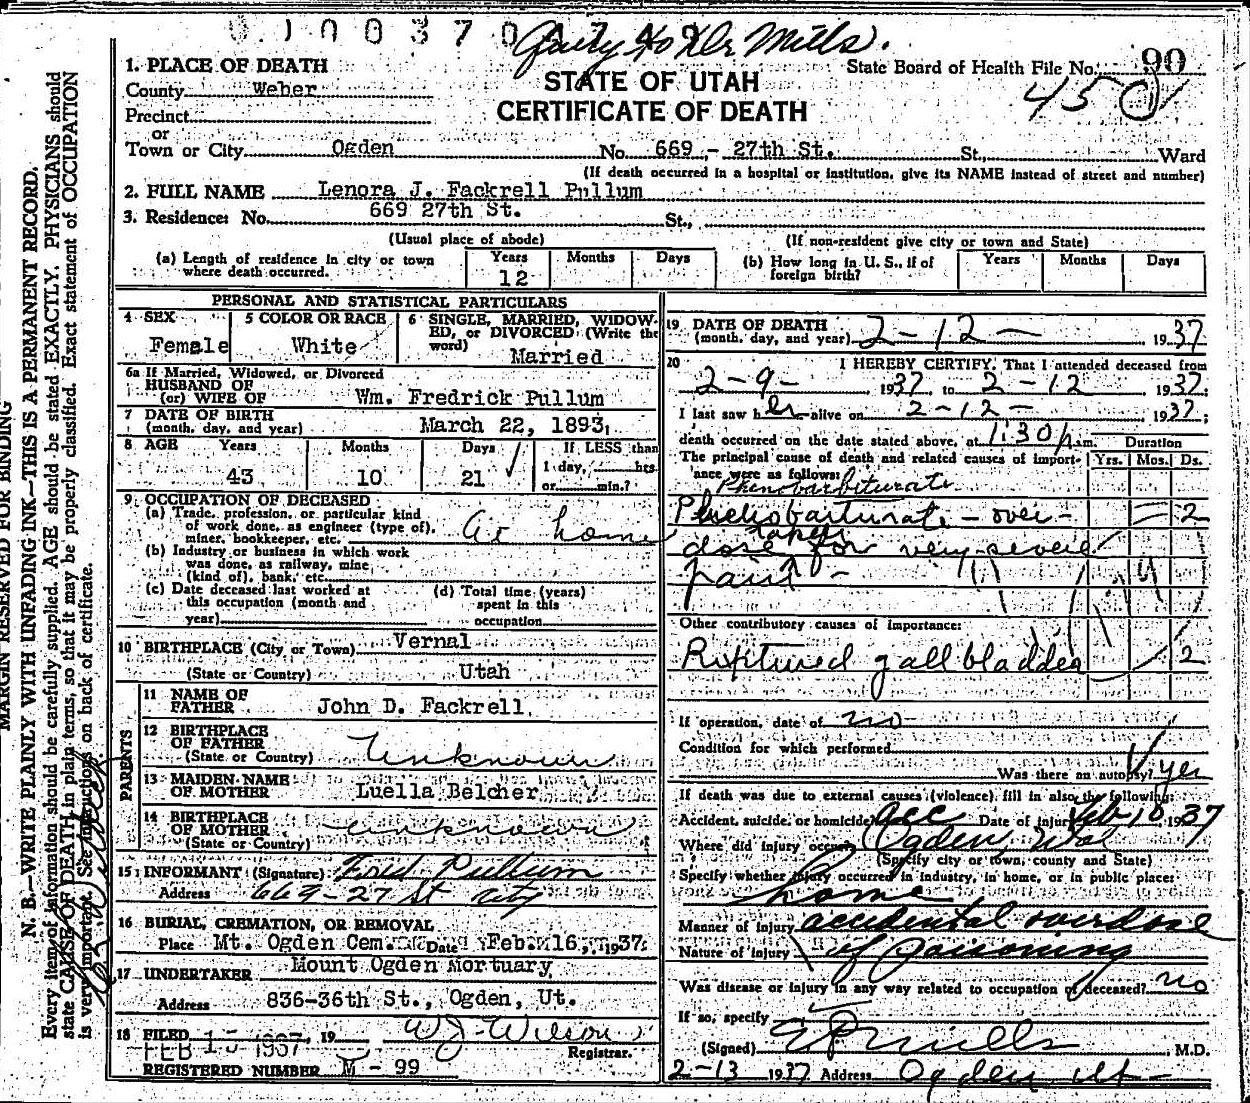 STATE OF UTAH
CERTIFICATE OF DEATH
State Board of Health File No. 90
450
1. PLACE OF DEATH
County Weber
Precinct
or
Town or City Ogden No. 669 - 27th St. St., Ward
(If death occurred in a hospital or institution, give its NAME instead of street and number)
2. FULL NAME Lenora J. Fackrell Pullum
3. Residence: No. 669 27th St. St.,
(Usual place of abode) (If non-resident give city or town and State)
(a) Length of residence in city or town where death occurred. Years 12 Months Days
(b) How long in U. S., if of foreign birth? Years Months Days
PERSONAL AND STATISTICAL PARTICULARS
4 SEX Female
5 COLOR OR RACE White
6 SINGLE, MARRIED, WIDOWED, or DIVORCED (Write the word) Married
6a If Married, Widowed, or Divorced
HUSBAND OF
(or) WIFE OF Wm. Fredrick Pullum
7 DATE OF BIRTH
(month, day, and year) March 22, 1893
8 AGE Years 43 Months 10 Days 21 If LESS than 1 day, hrs. or min.?
9 OCCUPATION OF DECEASED
(a) Trade, profession, or particular kind of work done, as engineer (type of), miner, bookkeeper, etc. at home
(b) Industry or business in which work was done, as railway, mine (kind of), bank, etc.
(c) Date deceased last worked at this occupation (month and year)
(d) Total time (years) spent in this occupation
10 BIRTHPLACE (City or Town) Vernal
(State or Country) Utah
PARENTS
11 NAME OF FATHER John D. Fackrell
12 BIRTHPLACE OF FATHER (State or Country) Unknown
13 MAIDEN NAME OF MOTHER Luella Belcher
14 BIRTHPLACE OF MOTHER (State or Country) unknown
15 INFORMANT (Signature) Fred Pullum
Address 669-27 St City
16 BURIAL, CREMATION, OR REMOVAL
Place Mt. Ogden Cem. Date Feb. 16, 1937
17 UNDERTAKER Mount Ogden Mortuary
Address 836-36th St., Ogden, Ut.
18 FILED FEB 15 1937 19
W J Wilson
Registrar.
REGISTERED NUMBER M - 99
19 DATE OF DEATH
(month, day, and year) 2-12- 1937
20 I HEREBY CERTIFY, That I attended deceased from
2-9- 1937 to 2-12 1937;
I last saw her alive on 2-12- 1937;
death occurred on the date stated above, at 1:30 p.m.
Duration
The principal cause of death and related causes of importance were as follows: Yrs. Mos. Ds.
Phenobarbiturate
- over- 2
dose taken for very severe
pain -
Other contributory causes of importance:
Ruptured gall bladder 2
If operation, date of no
Condition for which performed
Was there an autopsy? yes
If death was due to external causes (violence) fill in also the following:
Accident, suicide, or homicide? acc Date of injury Feb 10 1937
Where did injury occur? Ogden,
(Specify city or town, county and State)
Specify whether injury occurred in industry, in home, or in public place:
home
Manner of injury accidental overdose
Nature of injury of poisoning
Was disease or injury in any way related to occupation of deceased? no
If so, specify
(Signed) E P Mills, M.D.
2-13 1937 Address Ogden Ut
MARGIN RESERVED FOR BINDING
N. B.—WRITE PLAINLY WITH UNFADING INK—THIS IS A PERMANENT RECORD.
Every item of information should be carefully supplied. AGE should be stated EXACTLY. PHYSICIANS should
state CAUSE OF DEATH in plain terms, so that it may be properly classified. Exact statement of OCCUPATION
is very important. See instructions on back of certificate.